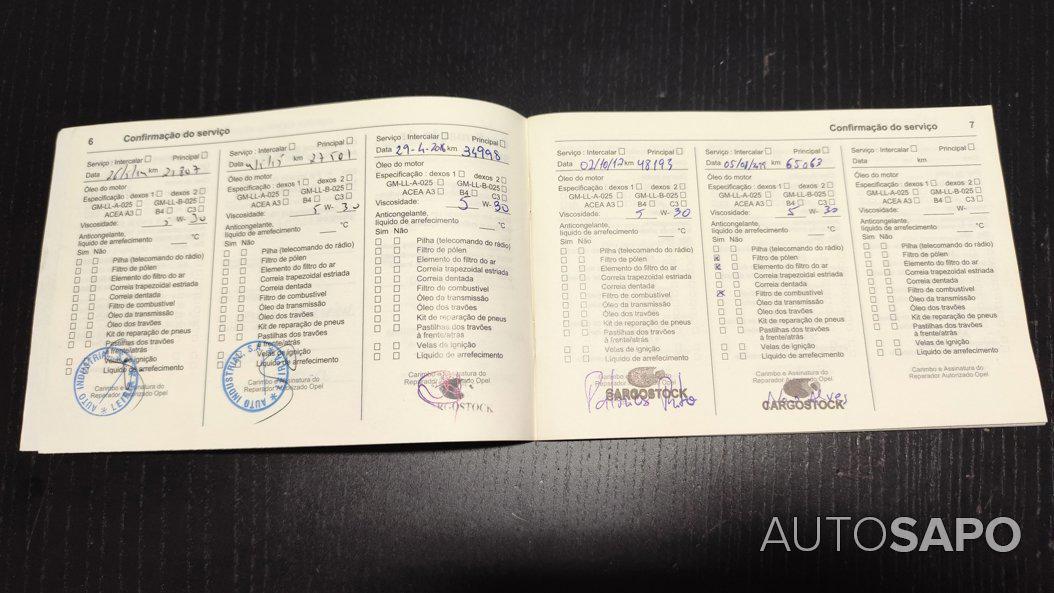 6 Confirmação do serviço
Serviço : Intercalar Principal
Data km 21807
Óleo do motor
Especificação : dexos 1 dexos 2
GM-LL-A-025 GM-LL-B-025
ACEA A3 B4 C3
Viscosidade: W- 30
Anticongelante,
líquido de arrefecimento °C
Sim Não
Pilha (telecomando do rádio)
Filtro de pólen
Elemento do filtro do ar
Correia trapezoidal estriada
Correia dentada
Filtro de combustível
Óleo da transmissão
Óleo dos travões
Kit de reparação de pneus
Pastilhas dos travões
à frente/atrás
Velas de ignição
Líquido de arrefecimento
Carimbo e Assinatura do
Reparador Autorizado Opel
AUTO INDUSTRIAL
Serviço : Intercalar Principal
Data km 27501
Óleo do motor
Especificação : dexos 1 dexos 2
GM-LL-A-025 GM-LL-B-025
ACEA A3 B4 C3
Viscosidade: 5 W- 30
Anticongelante,
líquido de arrefecimento °C
Sim Não
Pilha (telecomando do rádio)
Filtro de pólen
Elemento do filtro do ar
Correia trapezoidal estriada
Correia dentada
Filtro de combustível
Óleo da transmissão
Óleo dos travões
Kit de reparação de pneus
Pastilhas dos travões
à frente/atrás
Velas de ignição
Líquido de arrefecimento
Carimbo e Assinatura do
Reparador Autorizado Opel
AUTO INDUSTRIAL, S.A.
Serviço : Intercalar Principal
Data 29-4-2016 km 34998
Óleo do motor
Especificação : dexos 1 dexos 2
GM-LL-A-025 GM-LL-B-025
ACEA A3 B4 C3
Viscosidade: 5 W- 30
Anticongelante,
líquido de arrefecimento °C
Sim Não
Pilha (telecomando do rádio)
Filtro de pólen
Elemento do filtro do ar
Correia trapezoidal estriada
Correia dentada
Filtro de combustível
Óleo da transmissão
Óleo dos travões
Kit de reparação de pneus
Pastilhas dos travões
à frente/atrás
Velas de ignição
Líquido de arrefecimento
Carimbo e Assinatura do
Reparador Autorizado Opel
CARGOSTOCK
Confirmação do serviço 7
Serviço : Intercalar Principal
Data 02/10/17 km 48193
Óleo do motor
Especificação : dexos 1 dexos 2
GM-LL-A-025 GM-LL-B-025
ACEA A3 B4 C3
Viscosidade: 5 W- 30
Anticongelante,
líquido de arrefecimento °C
Sim Não
Pilha (telecomando do rádio)
Filtro de pólen
Elemento do filtro do ar
Correia trapezoidal estriada
Correia dentada
Filtro de combustível
Óleo da transmissão
Óleo dos travões
Kit de reparação de pneus
Pastilhas dos travões
à frente/atrás
Velas de ignição
Líquido de arrefecimento
Carimbo e Assinatura do
Reparador Autorizado Opel
CARGOSTOCK
Serviço : Intercalar Principal
Data km 65063
Óleo do motor
Especificação : dexos 1 dexos 2
GM-LL-A-025 GM-LL-B-025
ACEA A3 B4 C3
Viscosidade: 5 W- 30
Anticongelante,
líquido de arrefecimento °C
Sim Não
Pilha (telecomando do rádio)
Filtro de pólen
Elemento do filtro do ar
Correia trapezoidal estriada
Correia dentada
Filtro de combustível
Óleo da transmissão
Óleo dos travões
Kit de reparação de pneus
Pastilhas dos travões
à frente/atrás
Velas de ignição
Líquido de arrefecimento
Carimbo e Assinatura do
Reparador Autorizado Opel
CARGOSTOCK
Serviço : Intercalar Principal
Data km
Óleo do motor
Especificação : dexos 1 dexos 2
GM-LL-A-025 GM-LL-B-025
ACEA A3 B4 C3
Viscosidade: W-
Anticongelante,
líquido de arrefecimento °C
Sim Não
Pilha (telecomando do rádio)
Filtro de pólen
Elemento do filtro do ar
Correia trapezoidal estriada
Correia dentada
Filtro de combustível
Óleo da transmissão
Óleo dos travões
Kit de reparação de pneus
Pastilhas dos travões
à frente/atrás
Velas de ignição
Líquido de arrefecimento
Carimbo e Assinatura do
Reparador Autorizado Opel
AUTOSAPO